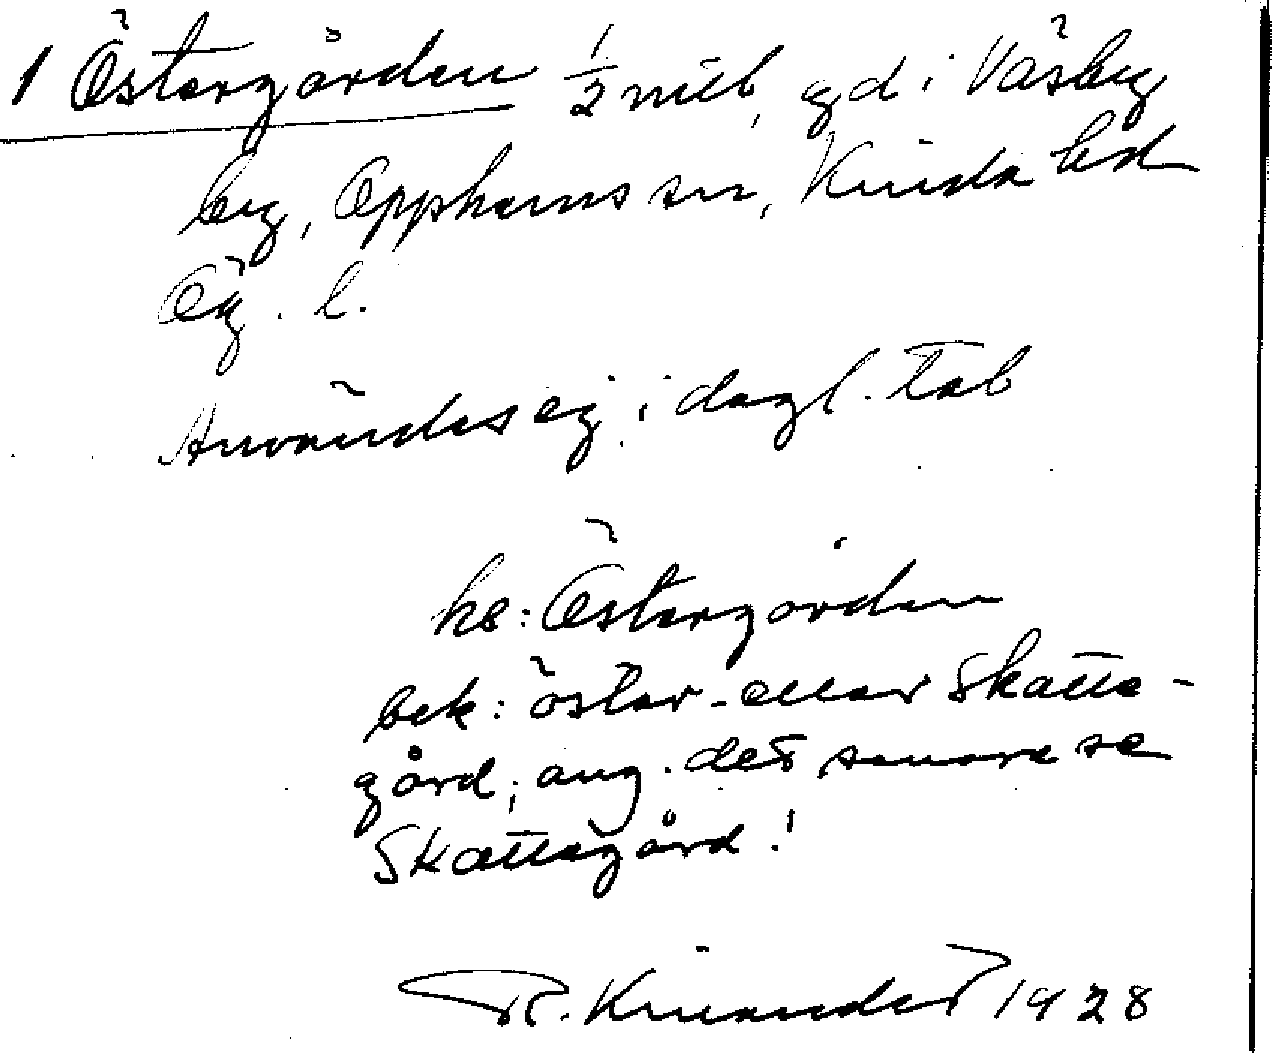 1 Östergården 1/2 mtl, gd i Väsby
by, Oppeby sn, Kinda hd
Ög. l.
Användes ej i dagl. tal
ke: Östergården
bek: öster- eller Skatte-
gård; ang. det senare se
Skattegård!
R. Kinander 1928